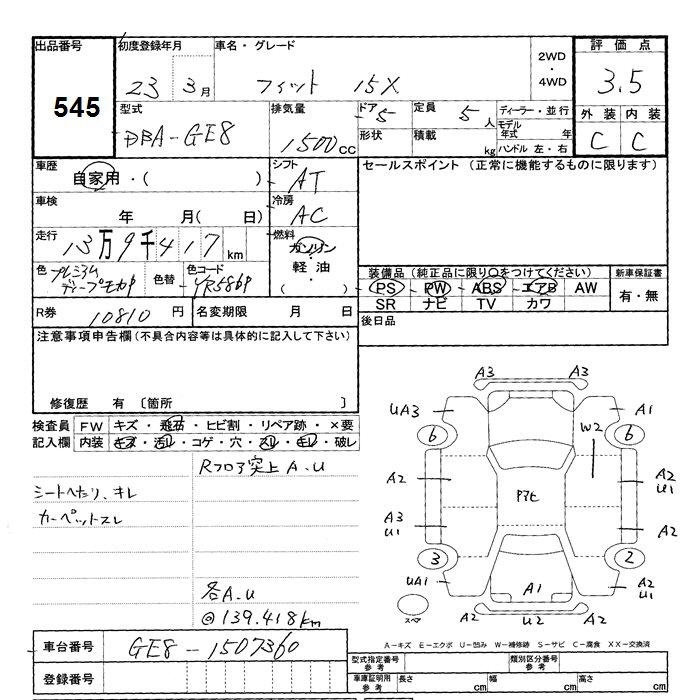 出品番号
545
初度登録年月
23 3月
車名・グレード
フィット 15X
2WD
・
4WD
評価点
3.5
外装 内装
C C
型式
DBA-GE8
排気量
1500cc
ドア 5
形状
定員 5人
積載 kg
ディーラー・並行
モデル年式 年
ハンドル 左・右
車歴
自家用・( )
シフト
AT
車検
年 月( 日)
冷房
AC
走行
13万9千417km
燃料
ガソリン
軽油
( )
色
プレミアム
ディープモカP
色替
色コード
YR586P
R券 10810円
名変期限 月 日
セールスポイント (正常に機能するものに限ります)
装備品(純正品に限り○をつけてください)
PS PW ABS エアB AW
SR ナビ TV カワ
新車保証書
有・無
後日品
注意事項申告欄(不具合内容等は具体的に記入して下さい)
修復歴 有 〔箇所 〕
検査員記入欄
FW キズ・飛石・ヒビ割・リペア跡・×要
内装 キズ・汚れ・コゲ・穴・スレ・キレ・破レ
Rフロア突上 A.U
シートへたり、キレ
カーペットスレ
各A.U
@139.418km
A3
UA3 A1
6 6
W2
A2 A2
U1
Pアセ
A3 A2
U1
3 2
UA1 A1 A2
U1
スペア
A2 U2 A2
A-キズ E-エクボ U-凹み W-補修跡 S-サビ C-腐食 XX-交換済
車台番号 GE8-1507360
登録番号
型式指定番号
参考
類別区分番号
参考
車庫証明用
参考
長さ cm 幅 cm 高さ cm